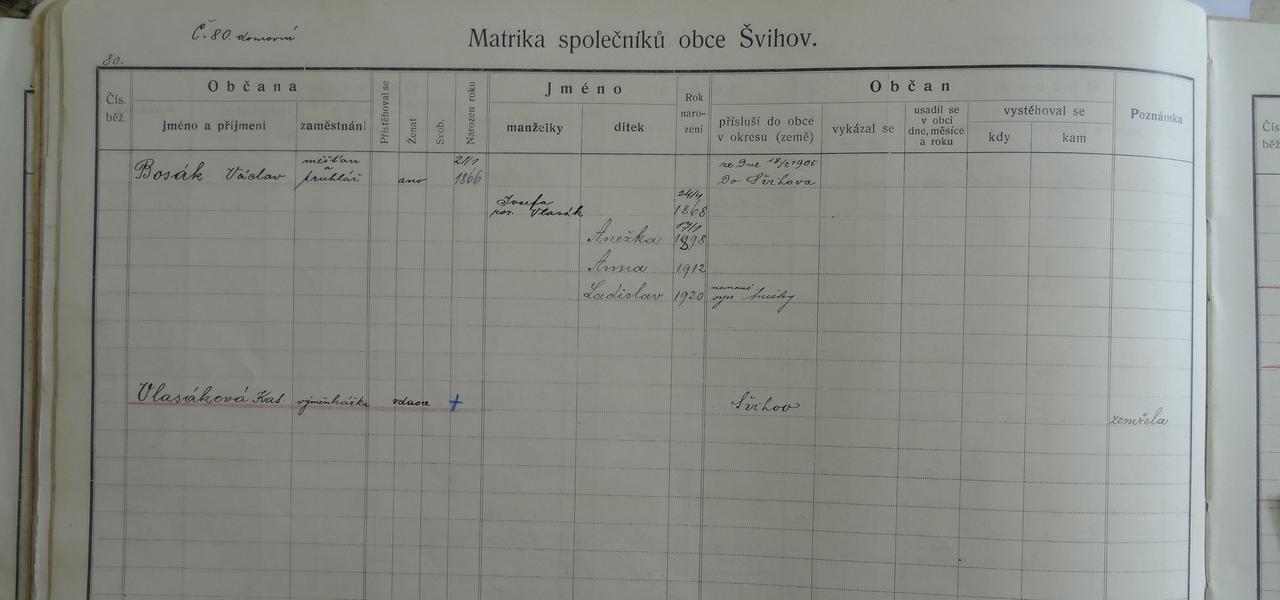 Č. 80. domovní
Matrika společníků obce Švihov.
80.
Čís. běž.
Občana
jméno a přijmení
zaměstnání
Přistěhoval se
Ženat
Svob.
Narozen roku
Jméno
manželky
dítek
Rok naro- zení
Občan
přísluší do obce v okresu (země)
vykázal se
usadil se v obci dne, měsíce a roku
vystěhoval se
kdy
kam
Poznámka
Čís. běž
měšťan 21/1 ze dne 18/2 1905
Bosák Václav a truhlář ano 1866 do Švihova
Josefa 24/4
roz. Vlasák 1868
17/1
Anežka 1898
Anna 1912
Ladislav 1920 syn Anežky
Vlasáková Kat. výměnkářka vdova + Švihov
zemřela